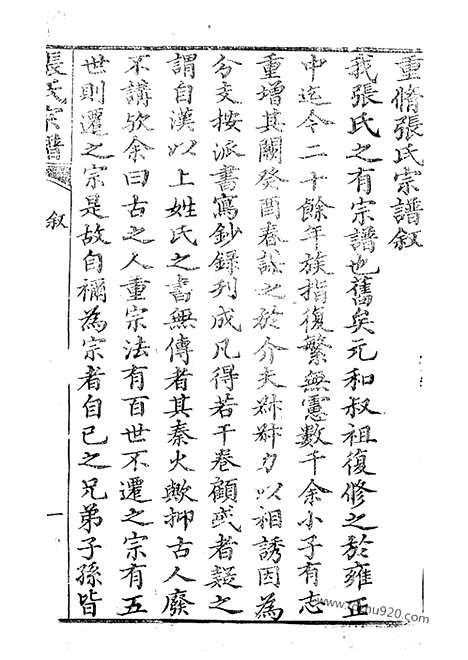 重脩張氏宗譜叙
我張氏之有宗譜也舊矣元和叔祖復修之於雍正
中迄今二十餘年族指復繁無慮數千余小子有志
重增其闕癸酉春謀之於介夫叔叔力以相誘因為
分支按派書寫鈔錄列成凡得若干卷顧或者疑之
謂自漢以上姓氏之書無傳者其秦火歟抑古人廢
不講欤余曰古之人重宗法有百世不遷之宗有五
世則遷之宗是故自禰為宗者自已之兄弟子孫皆
張氏宗譜
叙
一